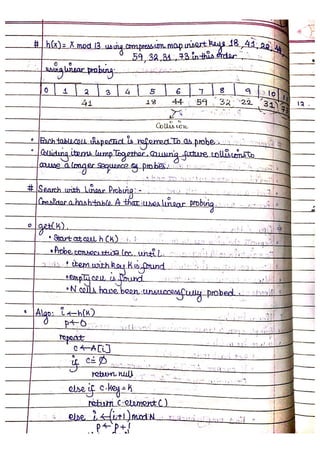 # h(x) = x mod 13 using compression map insert keys 18, 41, 22, 44,
59, 32, 31, 73 in this order
using linear probing.
0 1 2 3 4 5 6 7 8 9 10 11 12
41 18 44 59 32 22 31 7
Collision
• Each table cell inspected is referred To as probe.
• Colliding items lump Together, causing future collisions to
cause a longer sequence of probes.
# Search with Linear Probing:-
Consider a hash table A that uses linear probing
o get(k).
• Start at cell h(k)
• Probe consecutive loc. until
• item with key K is found
• empty cell is found
• N cells have been unsuccessfully probed.
• Algo: i ← h(k)
p ← 0
repeat
c ← A[i]
if c = Ø
return null
else if c.key = k
return c.element()
else i ← (i+1) mod N
p ← p+1